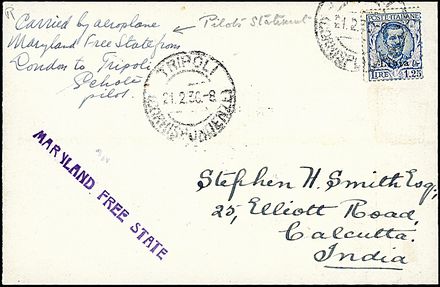 Carried by aeroplane
Maryland Free State from
London to Tripoli
pilot.
Pilot's Statement
TRIPOLI
21.2.36.-8
(CORRISPONDENZE)
21.2.3
POSTE ITALIANE
Libia
LIRE 1,25
MARYLAND FREE STATE
Stephen H. Smith Esq,
25, Elliott Road,
Calcutta.
India